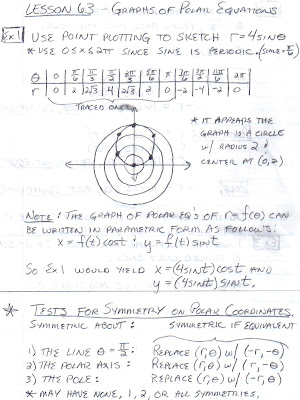 LESSON 63 - GRAPHS OF POLAR EQUATIONS
Ex 1 USE POINT PLOTTING TO SKETCH r=4sinθ
* USE 0≤x≤2π SINCE SINE IS PERIODIC.
θ 0 π/6 π/3 π/2 2π/3 5π/6 π 7π/6 3π/2 11π/6 2π
r 0 2 2√3 4 2√3 2 0 -2 -4 -2 0
TRACED ONCE
* IT APPEARS THE
GRAPH IS A CIRCLE
w/ RADIUS 2 &
CENTER AT (0,2)
NOTE: THE GRAPH OF POLAR EQ'S OF r=f(θ) CAN
BE WRITTEN IN PARAMETRIC FORM AS FOLLOWS:
x = f(t)cost ; y = f(t)sint
SO EX1 WOULD YIELD x=(4sint)cost AND
y=(4sint)sint.
* TESTS FOR SYMMETRY ON POLAR COORDINATES.
SYMMETRIC ABOUT: SYMMETRIC IF EQUIVALENT
1) THE LINE θ=π/2: REPLACE (r,θ) w/ (-r,-θ)
2) THE POLAR AXIS: REPLACE (r,θ) w/ (r,-θ)
3) THE POLE: REPLACE (r,θ) w/ (-r,θ)
* MAY HAVE NONE, 1, 2, OR ALL SYMMETRIES.